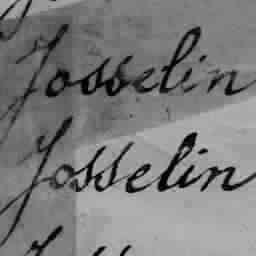 Josselin
Josselin